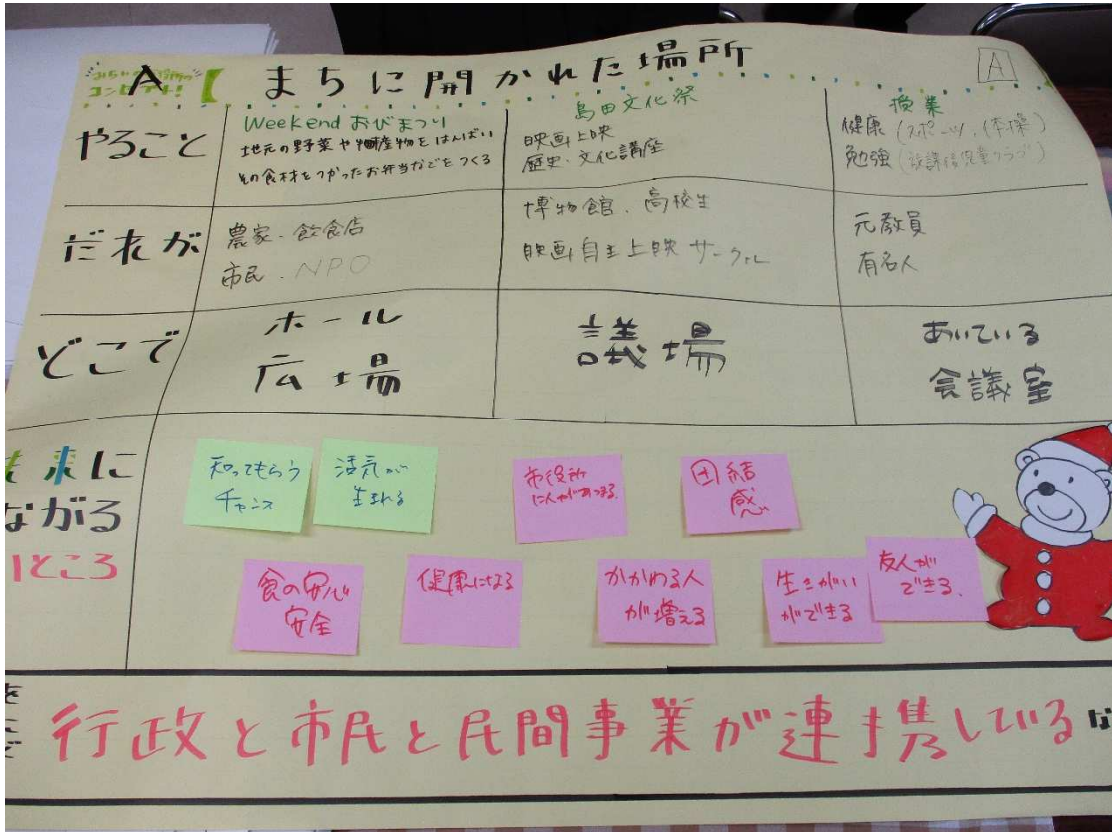 コンセプト!
A【 まちに開かれた場所
A
やること
Weekend おびまつり
地元の野菜や物産物をはんばい
その食材をつかったお弁当などをつくる
島田文化祭
映画上映
歴史・文化講座
授業
健康 (スポーツ, 体操)
勉強 (放課后児童クラブ)
だれが
農家・飲食店
市民・NPO
博物館・高校生
映画自主上映サークル
元教員
有名人
どこで
ホール
広場
議場
あいている
会議室
未来に
ながる
いところ
知ってもらう
チャンス
活気が
生まれる
市役所
に人があつまる
団結
感
食の安心
安全
健康になる
かかわる人
が増える
生きがい
ができる
友人が
できる.
行政と市民と民間事業が連携している
な